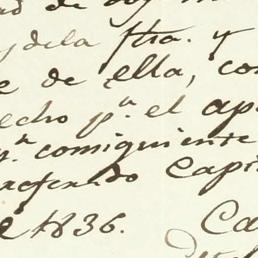 ad de
y dela fha. y
e de ella, con
echo p.ª el ap
y.ª consiguiente
referendo Capi
é 1836. Ca